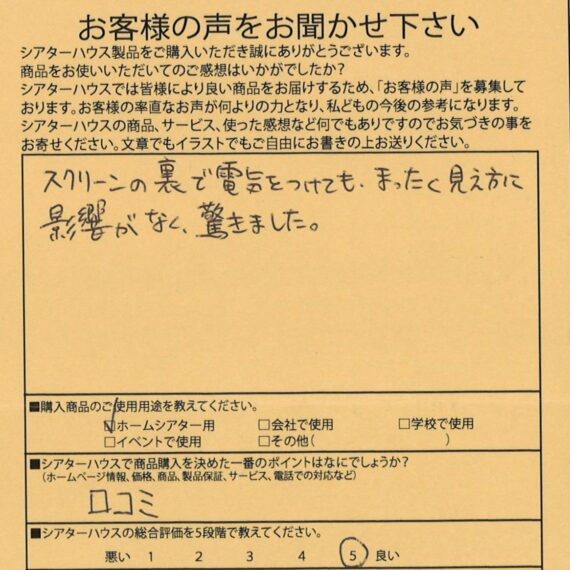 お客様の声をお聞かせ下さい
シアターハウス製品をご購入いただき誠にありがとうございます。
商品をお使いいただいてのご感想はいかがでしたか?
シアターハウスでは皆様により良い商品をお届けするため、「お客様の声」を募集して
おります。お客様の率直なお声が何よりの力となり、私どもの今後の参考になります。
シアターハウスの商品、サービス、使った感想など何でもありですのでお気づきの事を
お寄せください。文章でもイラストでもご自由にお書きの上お送りください。
スクリーンの裏で電気をつけても、まったく見え方に
影響がなく、驚きました。
■購入商品のご使用用途を教えてください。
☑ホームシアター用 □会社で使用 □学校で使用
□イベントで使用 □その他( )
■シアターハウスで商品購入を決めた一番のポイントはなにでしょうか?
(ホームページ情報、価格、商品、製品保証、サービス、電話での対応など)
口コミ
■シアターハウスの総合評価を5段階で教えてください。
悪い 1 2 3 4 5 良い